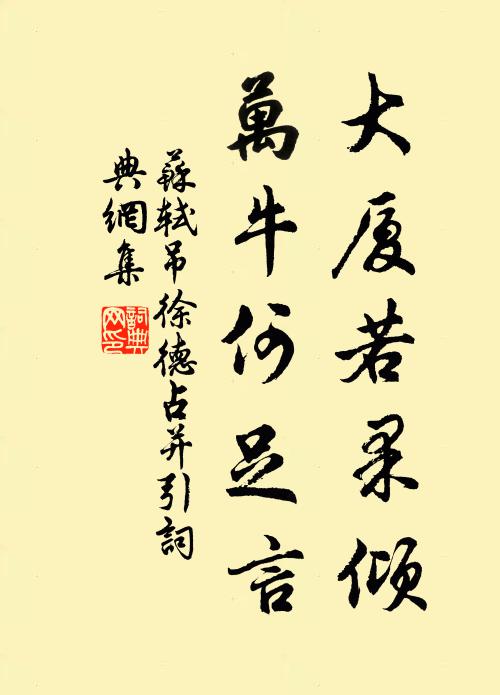 大厦若果倾
萬牛何足言
蘇軾吊徐德占并引詞
典網集
詞典
网印